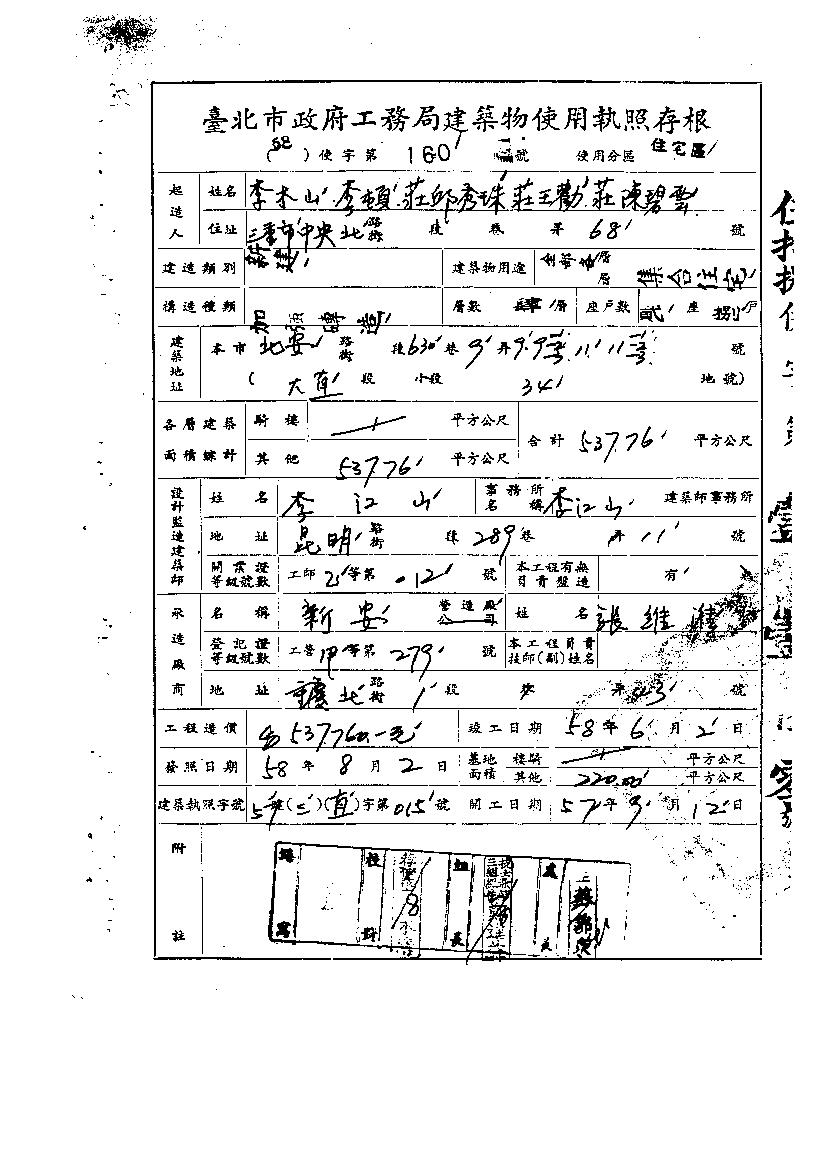 臺北市政府工務局建築物使用執照存根
(58)使字第 1601 號 使用分區 住宅區
起造人 姓名 李木山 李頓 莊邱秀珠 莊王勸 莊陳碧雲
住址 三重市中央北 路街 段 巷 弄 68 號
建造類別 新建 建築物用途 層 層 集合住宅
構造種類 加強磚造 層數 肆 層 座戶數 貳 座 捌 戶
建築地址 本市 北安 路街 段 630 巷 9 弄 9. 號
(大直 段 小段 34 地號)
各層建築面積總計 騎樓 平方公尺 合計 537.76 平方公尺
其他 537.76 平方公尺
設計監造建築師 姓名 李江山 事務所名稱 李江山 建築師事務所
地址 昆明 路街 段 289 巷 弄 11 號
開業證等級號數 工師 等第 012 號 本工程有無負責監造 有
承造廠商 名稱 新安 營造廠公司 姓名 張維
登記證等級號數 工營 甲 等第 279 號 本工程負責技師(副)姓名
地址 北 路街 1 段 巷 弄 43 號
工程造價 537760.-元 竣工日期 58 年 6 月 2 日
發照日期 58 年 8 月 2 日 基地面積 騎樓 平方公尺
其他 220.00 平方公尺
建築執照字號 57 建(三)(直)字第 015 號 開工日期 57 年 9 月 12 日
附註
繕寫 校對 組長 處長